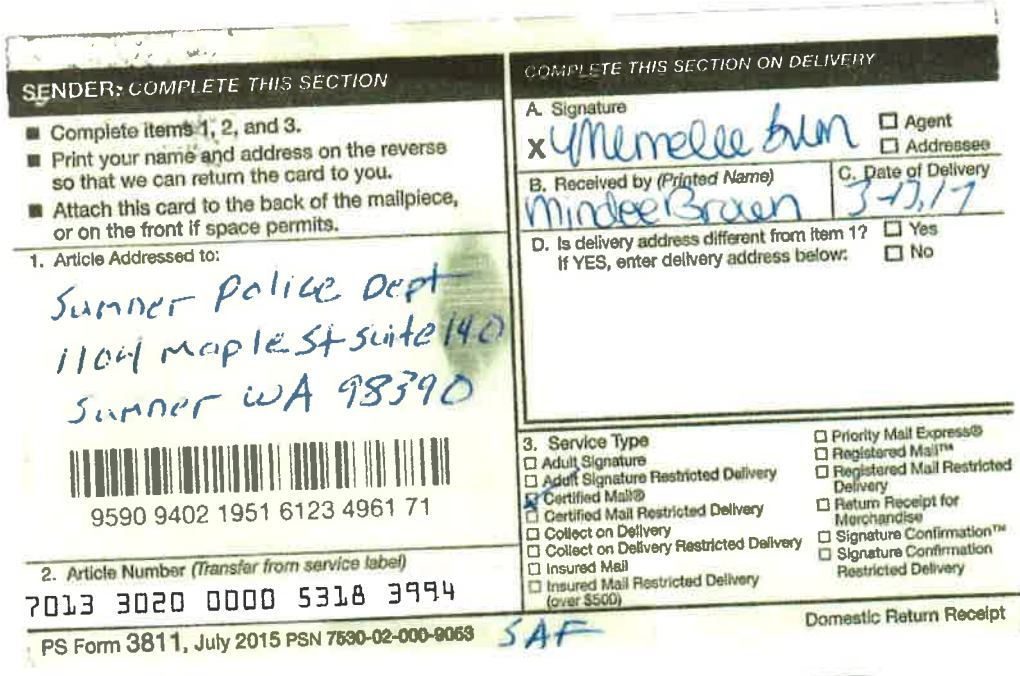 SENDER: COMPLETE THIS SECTION
■ Complete items 1, 2, and 3.
■ Print your name and address on the reverse
so that we can return the card to you.
■ Attach this card to the back of the mailpiece,
or on the front if space permits.
1. Article Addressed to:
Sumner Police Dept
1104 Maple St Suite 140
Sumner WA 98390
9590 9402 1951 6123 4961 71
2. Article Number (Transfer from service label)
7013 3020 0000 5318 3994
COMPLETE THIS SECTION ON DELIVERY
A. Signature
X
☐ Agent
☐ Addressee
B. Received by (Printed Name)
Mindee
C. Date of Delivery
D. Is delivery address different from item 1? ☐ Yes
If YES, enter delivery address below: ☐ No
3. Service Type
☐ Adult Signature
☐ Adult Signature Restricted Delivery
☑ Certified Mail®
☐ Certified Mail Restricted Delivery
☐ Collect on Delivery
☐ Collect on Delivery Restricted Delivery
☐ Insured Mail
☐ Insured Mail Restricted Delivery
(over $500)
☐ Priority Mail Express®
☐ Registered Mail™
☐ Registered Mail Restricted
Delivery
☐ Return Receipt for
Merchandise
☐ Signature Confirmation™
☐ Signature Confirmation
Restricted Delivery
PS Form 3811, July 2015 PSN 7530-02-000-9053
SAF
Domestic Return Receipt